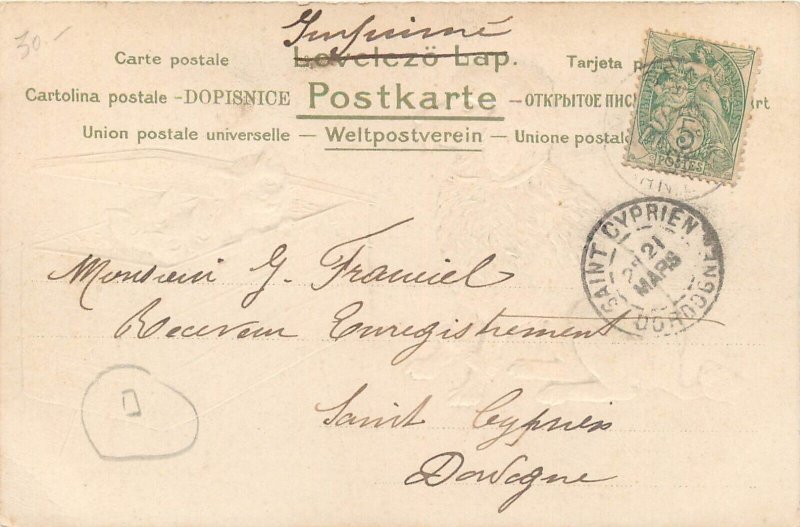 30.-
Imprimé
Levelezö Lap.
Carte postale
Tarjeta p
Cartolina postale -DOPISNICE Postkarte -ОТКРЫТОЕ ПИС
Union postale universelle - Weltpostverein - Unione postal
5
POSTES
SAINT CYPRIEN
21
MARS
DORDOGNE
Monsieur G. Franciel
Receveur Enregistrement
Saint Cyprien
Dordogne